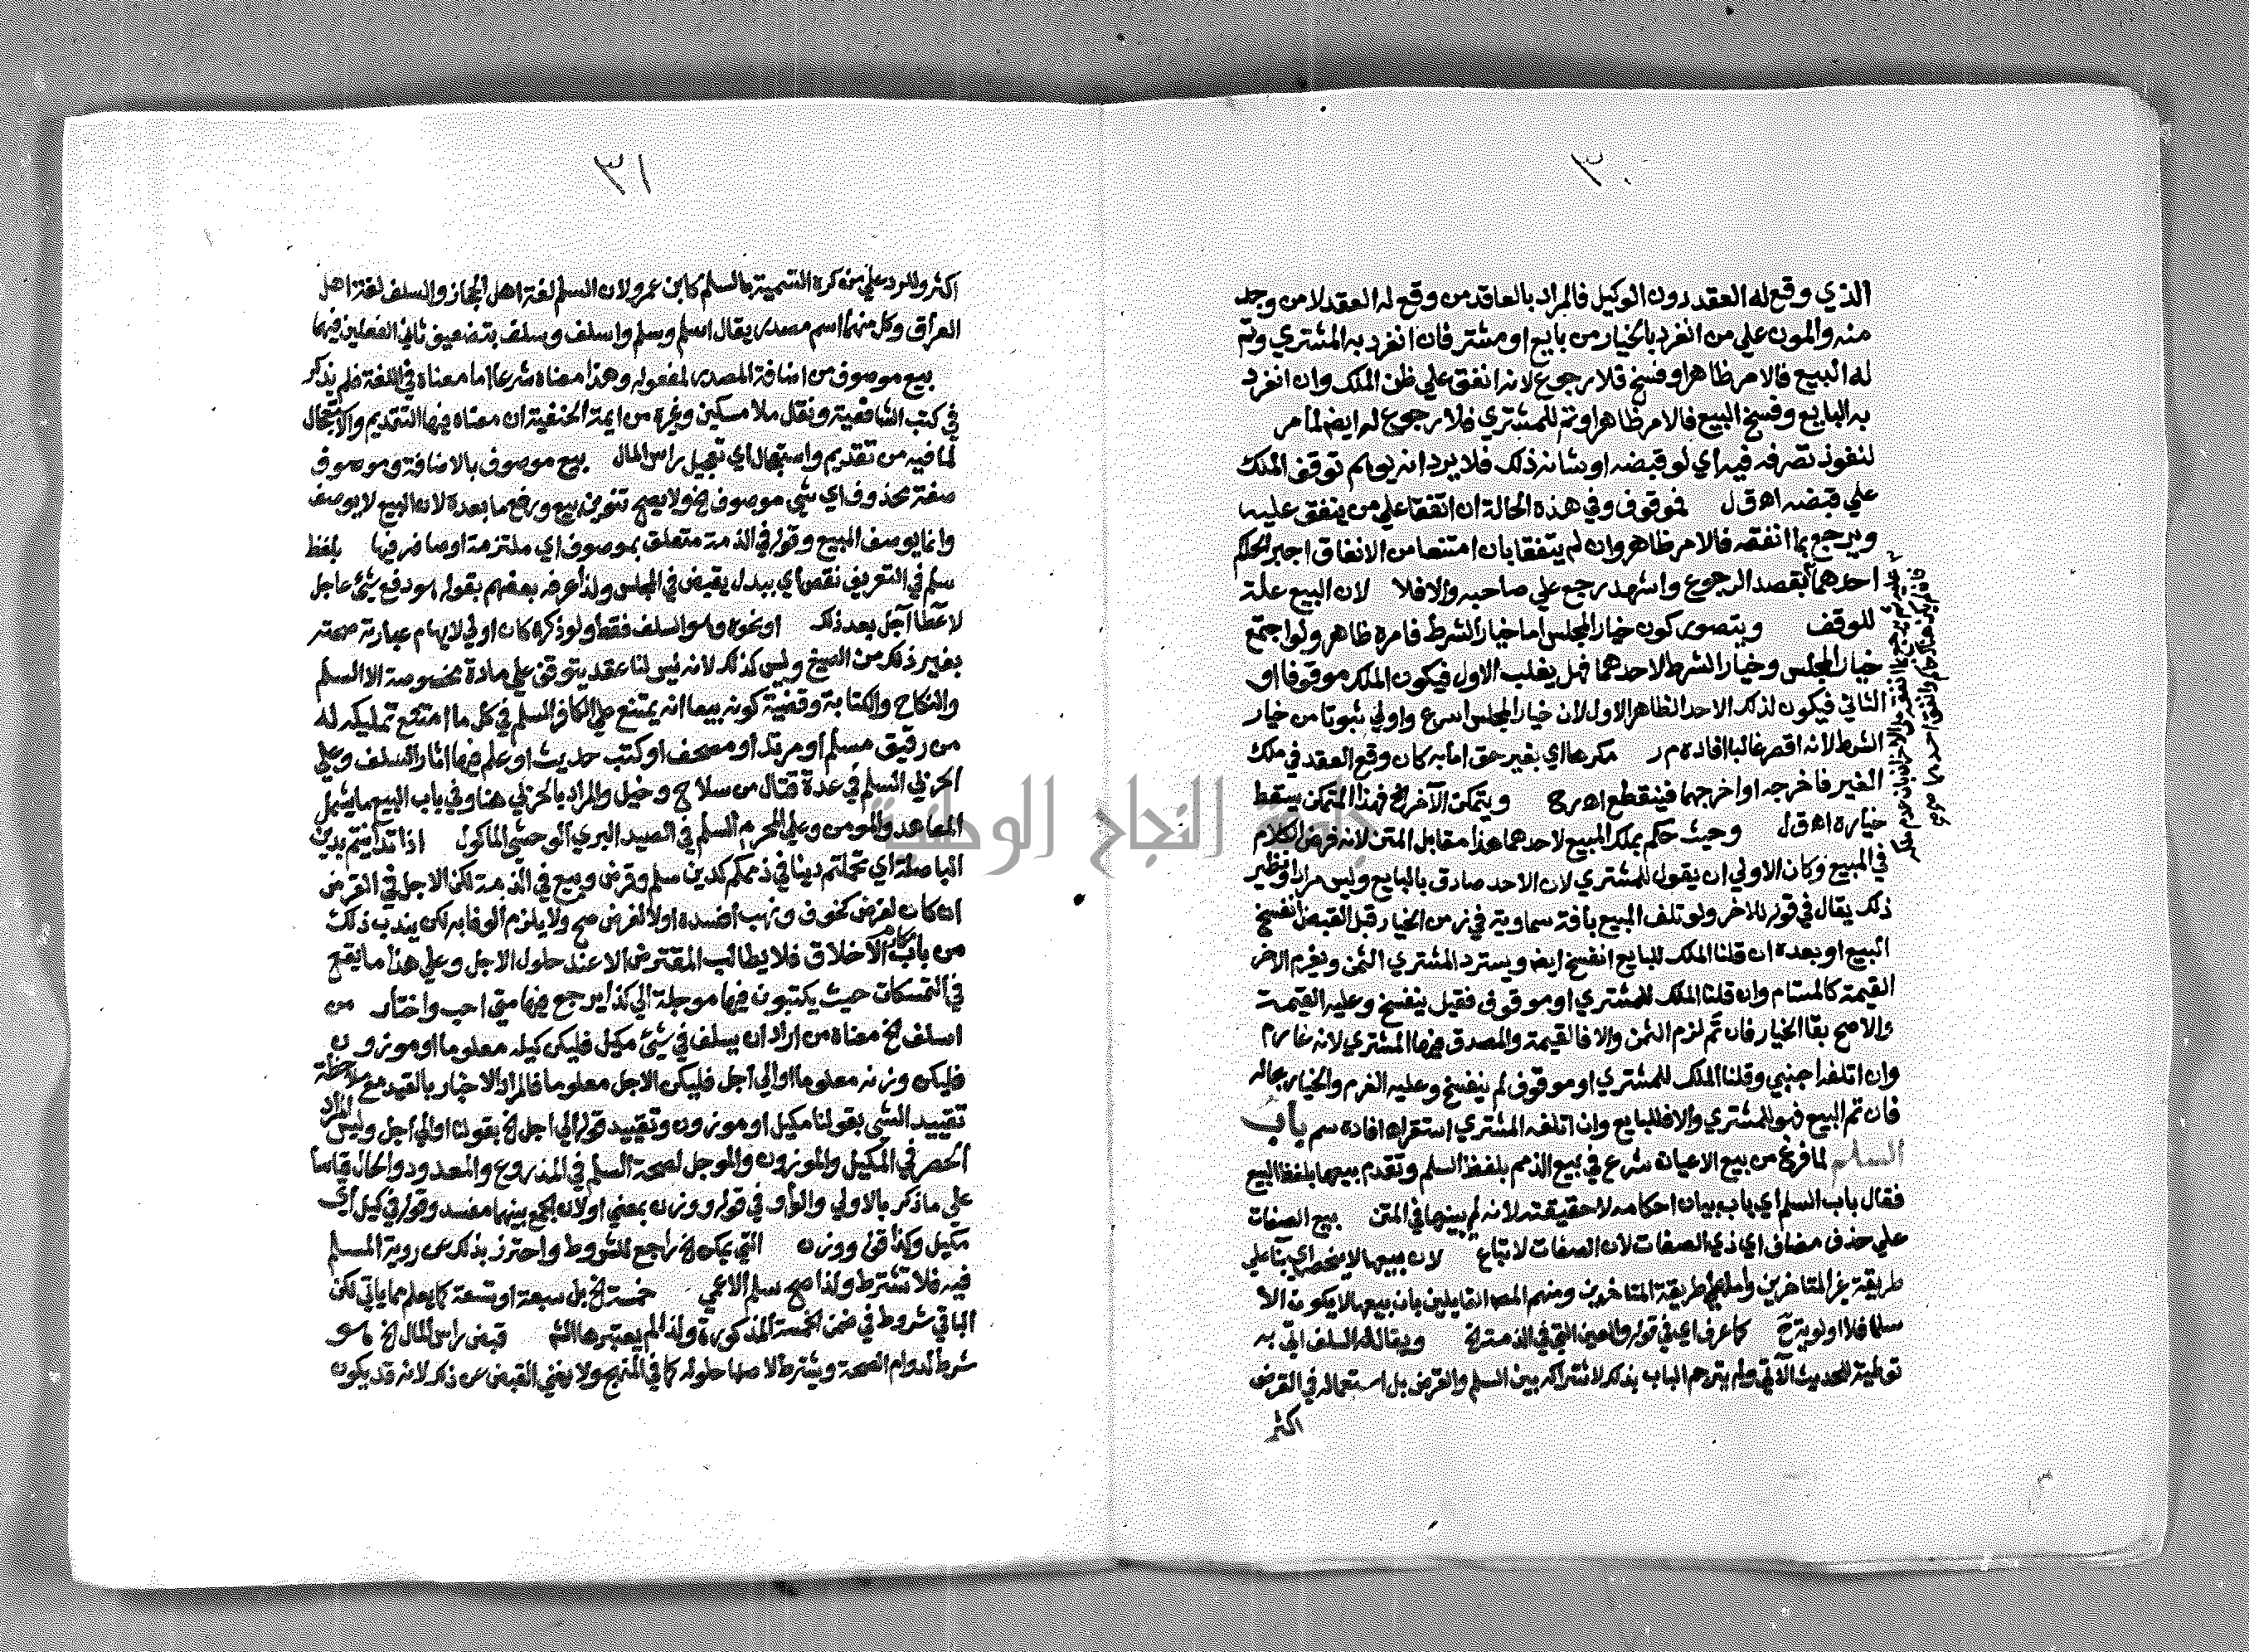 ٣٠
الذي وقع له العقد دون الوكيل فالمراد بالعاقد من وقع له العقد لا من وجد
منه والمون علي من انفرد بالخيار من بايع او مشتر فان انفرد به المشتري وتم
له البيع فالامر ظاهر او فسخ فلا رجوع لانه انفق علي ظن الملك وان انفرد
به البايع وفسخ البيع فالامر ظاهر او تم للمشتري فلا رجوع له ايضا لما مر
لنفوذ تصرفه فيه اي لو قبضه او شانه ذلك فلا يرد انه يوهم توقف الملك
علي قبضه اهـ ق ل فموقوف وفي هذه الحالة ان اتفقا علي من ينفق عليه
ويرجع بما انفقه فالامر ظاهر وان لم يتفقا بان امتنعا من الانفاق اجبر الحاكم
احدهما بقصد الرجوع واشهد رجع علي صاحبه والا فلا لان البيع علة
للوقف ويتصور كون خيار المجلس اما خيار الشرط فامره ظاهر ولو اجتمع
خيار المجلس وخيار الشرط لاحدهما فهل يغلب الاول فيكون الملك موقوفا او
الثاني فيكون لذلك الاحد الظاهر الاول لان خيار المجلس اسرع واولي ثبوتا من خيار
الشرط لانه اقصر غالبا افاده م ر مكرها اي بغير حق اما به كان وقع العقد في ملك
الغير فاخرجه او اخرجهما فينقطع اهـ ر ح ويتمكن الآخر الخ فهذا المتمكن يسقط
خياره اهـ ق ل وحيث حكم بملك المبيع لاحدهما هذا مقابل المتن لانه فرض الكلام
في المبيع وكان الاولي ان يقول للمشتري لان الاحد صادق بالبايع وليس مرادا ونظير
ذلك يقال في قوله للاخر ولو تلف المبيع بآفة سماوية في زمن الخيار قبل القبض انفسخ
البيع او بعده ان قلنا الملك للبايع انفسخ ايضا ويسترد المشتري الثمن ويغرم الاخر
القيمة كالمستام وان قلنا الملك للمشتري او موقوف فقيل ينفسخ وعليه القيمة
والاصح بقا الخيار فان تم لزم الثمن والا فالقيمة والمصدق فيها المشتري لانه غارم
وان اتلفه اجنبي وقلنا الملك للمشتري او موقوف لم ينفسخ وعليه الغرم والخيار بحاله
فان تم البيع فهو للمشتري والا فللبايع وان اتلفه المشتري استقر اهـ افاده سم باب
السلم لما فرغ من بيع الاعيان شرع في بيع الذمم بلفظ السلم وتقدم بيعها بلفظ البيع
فقال باب السلم اي باب بيان احكامه لا حقيقته لانه لم يبينها في المتن بيع الصفات
علي حذف مضاف اي ذي الصفات لان الصفات لا تباع لان بيعها لا ينحصر اي بنا علي
طريقة غير المتاخرين واما علي طريقة المتاخرين ومنهم المص القايلين بان بيعها لا يكون الا
سلما فلا اولوية ح كما عرف اي في قوله والعين التي في الذمة الخ ويقال له السلف اتي به
توطية للحديث الآتي ولم يترجم الباب بذلك لاشتراكه بين السلم والقرض بل استعماله في القرض
اكثر
٣١
اكثر وللرد علي من كره التسمية بالسلم كابن عمر ولان السلم لغة اهل الحجاز والسلف لغة اهل
العراق وكل منهما اسم مصدر يقال اسلم وسلم واسلف وسلف بتضعيف ثاني الفعلين فيهما
بيع موصوف من اضافة المصدر لمفعوله وهذا معناه شرعا اما معناه في اللغة فلم يذكر
في كتب الشافعية ونقل ملا مسكين وغيره من ايمة الحنفية ان معناه فيها التقديم والاستعجال
لما فيه من تقديم واستعجال اي تعجيل راس المال بيع موصوف بالاضافة وموصوف
صفة محذوف اي شي موصوف الخ ولا يصح تنوين بيع ورفع ما بعده لان البيع لا يوصف
وانما يوصف المبيع وقوله في الذمة متعلق بموصوف اي ملتزمة اوصافه فيها بلفظ
سلم في التعريف نقص اي ببدل يقبض في المجلس ولذا عرفه بعضهم بقوله هو دفع شئ عاجل
لاعطا آجل بعد ذلك او نحوه وهو السلف فقط ولو ذكره كان اولي لايهام عبارته صحته
بغير ذلك من الصيغ وليس كذلك لانه ليس لنا عقد يتوقف علي مادة مخصوصة الا السلم
والنكاح والكتابة وقضية كونه بيعا انه يمتنع علي الكافر السلم في كل ما امتنع تمليكه له
من رقيق مسلم او مرتد او مصحف او كتب حديث او علم فيها اثار السلف وعلي
الحربي السلم في عدة قتال من سلاح وخيل والمراد بالحربي هنا وفي باب البيع ما يشمل
المعاهد والمومن وعلي المحرم السلم في الصيد البري الوحشي الماكول اذا تداينتم بدين
البا صلة اي تحملتم دينا في ذممكم كدين سلم وقرض وبيع في الذمة لكن الاجل في القرض
ان كان لغرض كخوف ونهب افسده او لا لغرض صح ولا يلزم الوفا به لكن يندب ذلك
من باب مكارم الاخلاق فلا يطالب المقترض الا عند حلول الاجل وعلي هذا ما يقع
في التمسكات حيث يكتبون فيها موجلة الي كذا يرجع فيها متي احب واختار من
اسلف الخ معناه من اراد ان يسلف في شئ مكيل فليكن كيله معلوما او موزون
فليكن وزنه معلوما او الي اجل فليكن الاجل معلوما فالمراد الاخبار بالقيد مع ملاحظة
تقييد الشي بقولنا مكيل او موزون وتقييد قوله الي اجل الخ بقولنا او الي اجل وليس المراد
الحصر في المكيل والموزون والموجل لصحة السلم في المذروع والمعدود والحال قياسا
علي ما ذكر بالاولي والواو في قوله ووزن بمعني او لان الجمع بينهما مفسد وقوله في كيل اي
مكيل وكذا قوله ووزن التي يمكن الخ راجع للشروط واحترز بذلك عن روية المسلم
فيه فلا تشترط ولذا صح سلم الاعمي خمسة الخ بل سبعة او تسعة كما يعلم مما ياتي لكن
الباقي شروط في ضمن الخمسة المذكورة ولذا لم يعتبرها الش قبض راس المال الخ هو
شرط لدوام الصحة ويشترط لاصلها حلوله كما في المنهج ولا يغني القبض عن ذكر لانه قد يكون